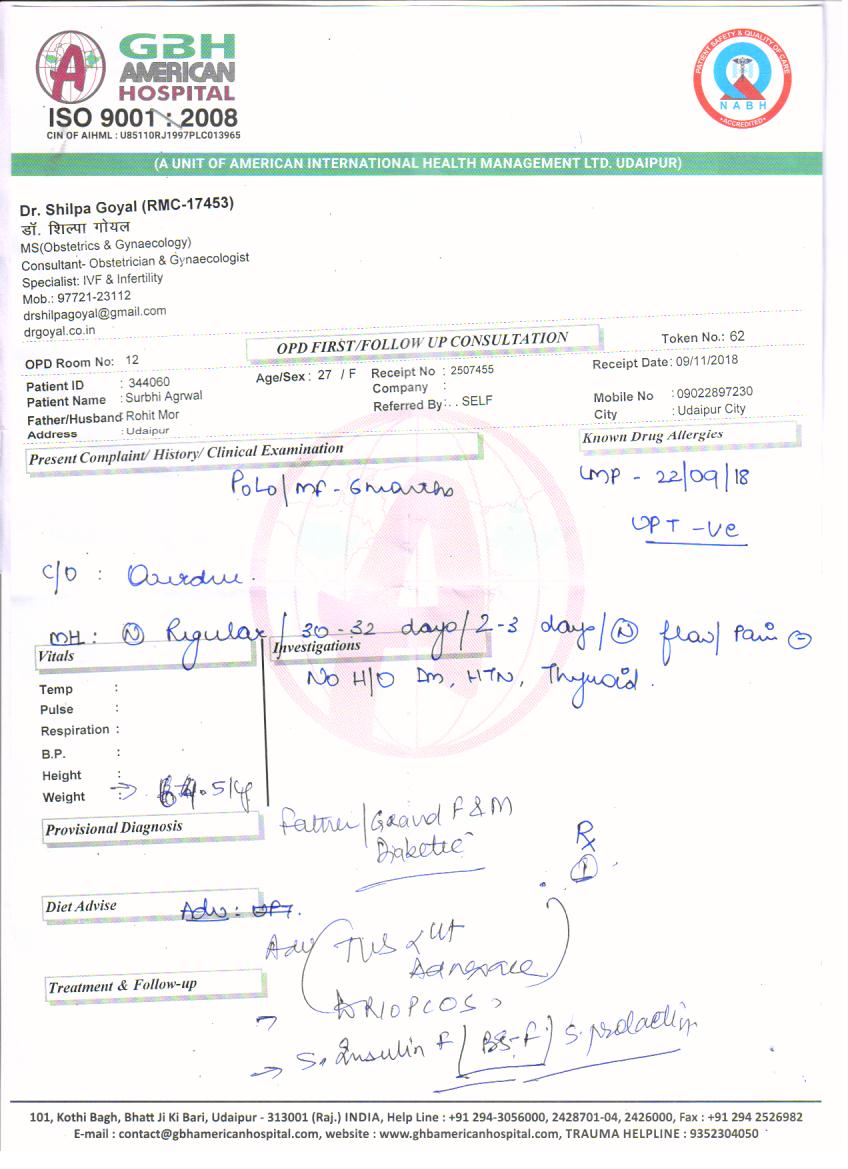 GBH
AMERICAN
HOSPITAL
ISO 9001 : 2008
CIN OF AIHML : U85110RJ1997PLC013965
PATIENT SAFETY & QUALITY OF CARE
NABH
ACCREDITED
(A UNIT OF AMERICAN INTERNATIONAL HEALTH MANAGEMENT LTD. UDAIPUR)
Dr. Shilpa Goyal (RMC-17453)
डॉ. शिल्पा गोयल
MS(Obstetrics & Gynaecology)
Consultant- Obstetrician & Gynaecologist
Specialist: IVF & Infertility
Mob.: 97721-23112
drshilpagoyal@gmail.com
drgoyal.co.in
OPD FIRST/FOLLOW UP CONSULTATION
Token No.: 62
OPD Room No: 12
Receipt Date: 09/11/2018
Patient ID : 344060
Age/Sex : 27 / F
Receipt No : 2507455
Patient Name : Surbhi Agrwal
Company :
Mobile No : 09022897230
Father/Husband: Rohit Mor
Referred By: . . SELF
City : Udaipur City
Address : Udaipur
Present Complaint/ History/ Clinical Examination
Known Drug Allergies
P0L0/ MF - 6 months
LMP - 22/09/18
UPT -ve
C/O : Overdue.
MH : (N) Regular / 30-32 days / 2-3 days / (N) flow / Pain ⊖
Vitals
Investigations
No H/O Dm, HTN, Thyroid.
Temp :
Pulse :
Respiration :
B.P. :
Height :
Weight : .5 kg
Provisional Diagnosis
Father / Grand F & M
Diabetic
Rx
1
Diet Advise
Adv : UPT.
Adv TVS Ut
Adnexae
Treatment & Follow-up
R/O PCOS
S. Insulin F / BS-F / S. prolactin
101, Kothi Bagh, Bhatt Ji Ki Bari, Udaipur - 313001 (Raj.) INDIA, Help Line : +91 294-3056000, 2428701-04, 2426000, Fax : +91 294 2526982
E-mail : contact@gbhamericanhospital.com, website : www.ghbamericanhospital.com, TRAUMA HELPLINE : 9352304050